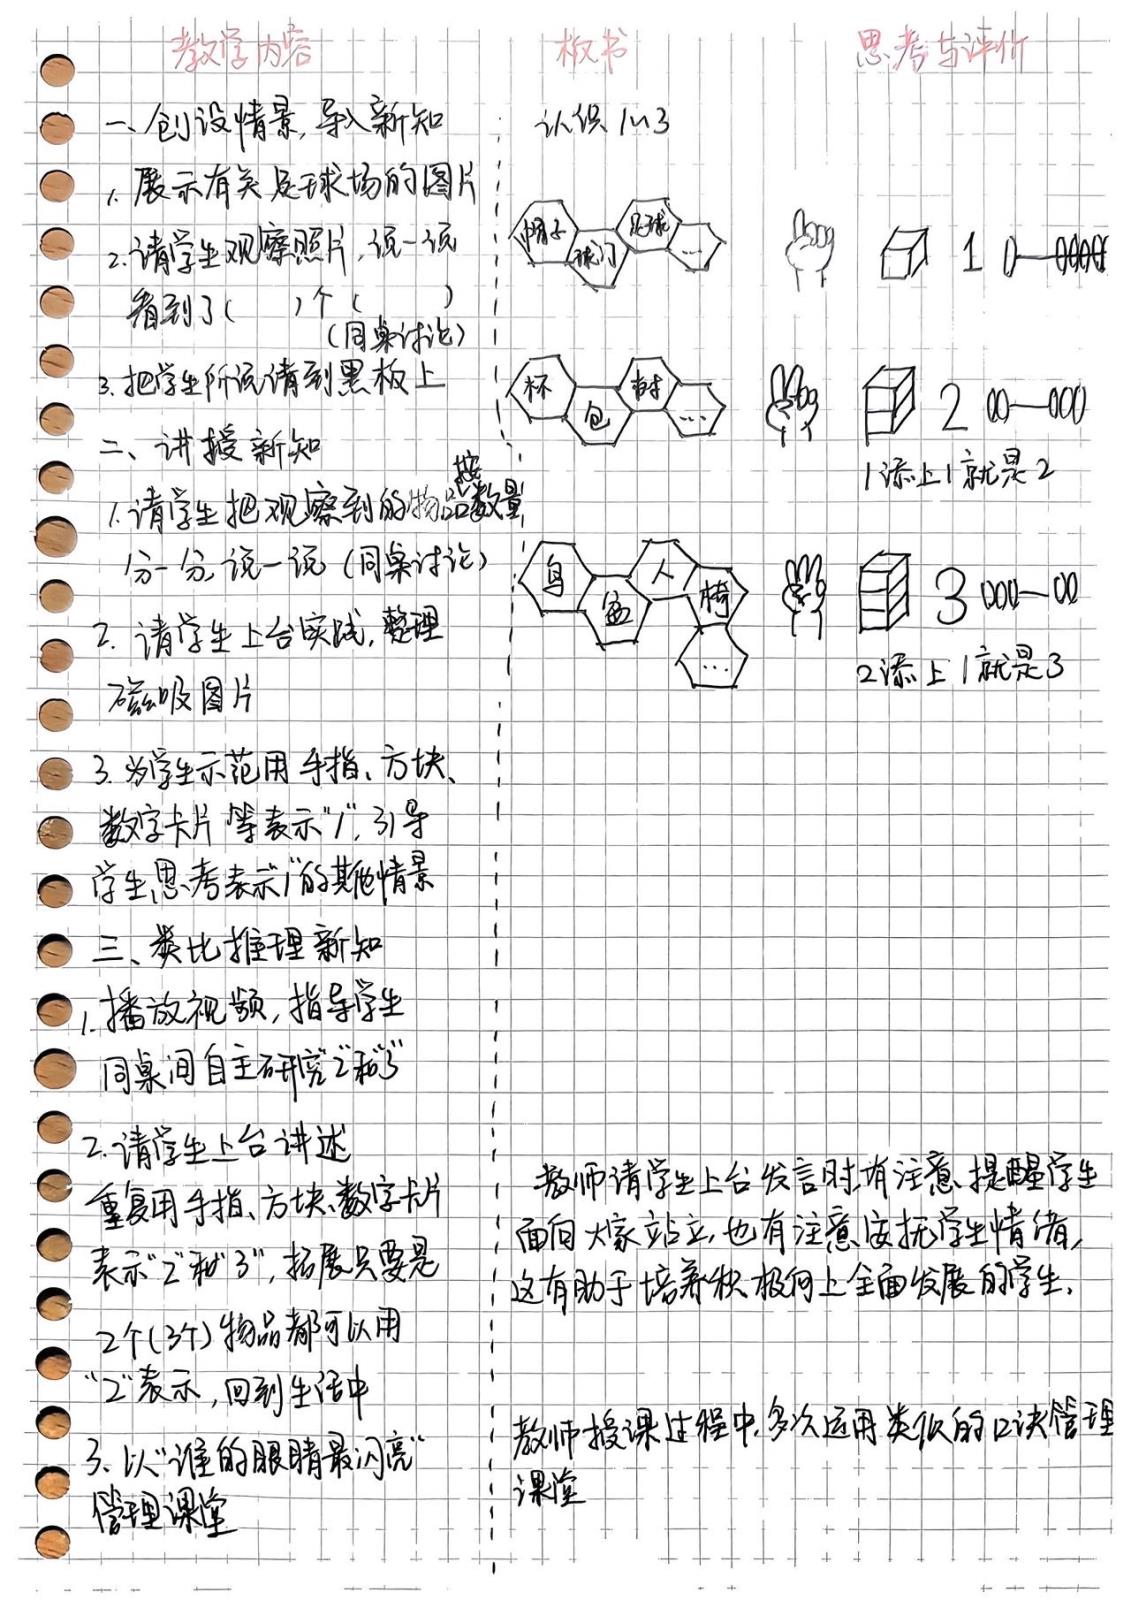 教学内容
板书
思考与评价
一、创设情景,导入新知
1. 展示有关足球场的图片
2. 请学生观察照片,说一说
看到了( )个( )
(同桌讨论)
3. 把学生所说请到黑板上
二、讲授新知
1. 请学生把观察到的物品按数量
分一分,说一说(同桌讨论)
2. 请学生上台实践,整理
磁吸图片
3. 为学生示范用手指、方块、
数字卡片等表示“1”,引导
学生思考表示“1”的其他情景
三、类比推理新知
1. 播放视频,指导学生
同桌间自主研究“2”和“3”
2. 请学生上台讲述
重复用手指、方块、数字卡片
表示“2”和“3”,拓展只要是
2个(3个)物品都可以用
“2”表示,回到生活中
3. 以“谁的眼睛最闪亮”
管理课堂
认识1~3
帽子 球门 足球 ...
1
杯 包 树 ...
2
1添上1就是2
鸟 盆 人 椅 ...
3
2添上1就是3
教师请学生上台发言时,有注意提醒学生
面向大家站立,也有注意安抚学生情绪,
这有助于培养积极向上全面发展的学生.
教师授课过程中,多次运用类似的口诀管理
课堂